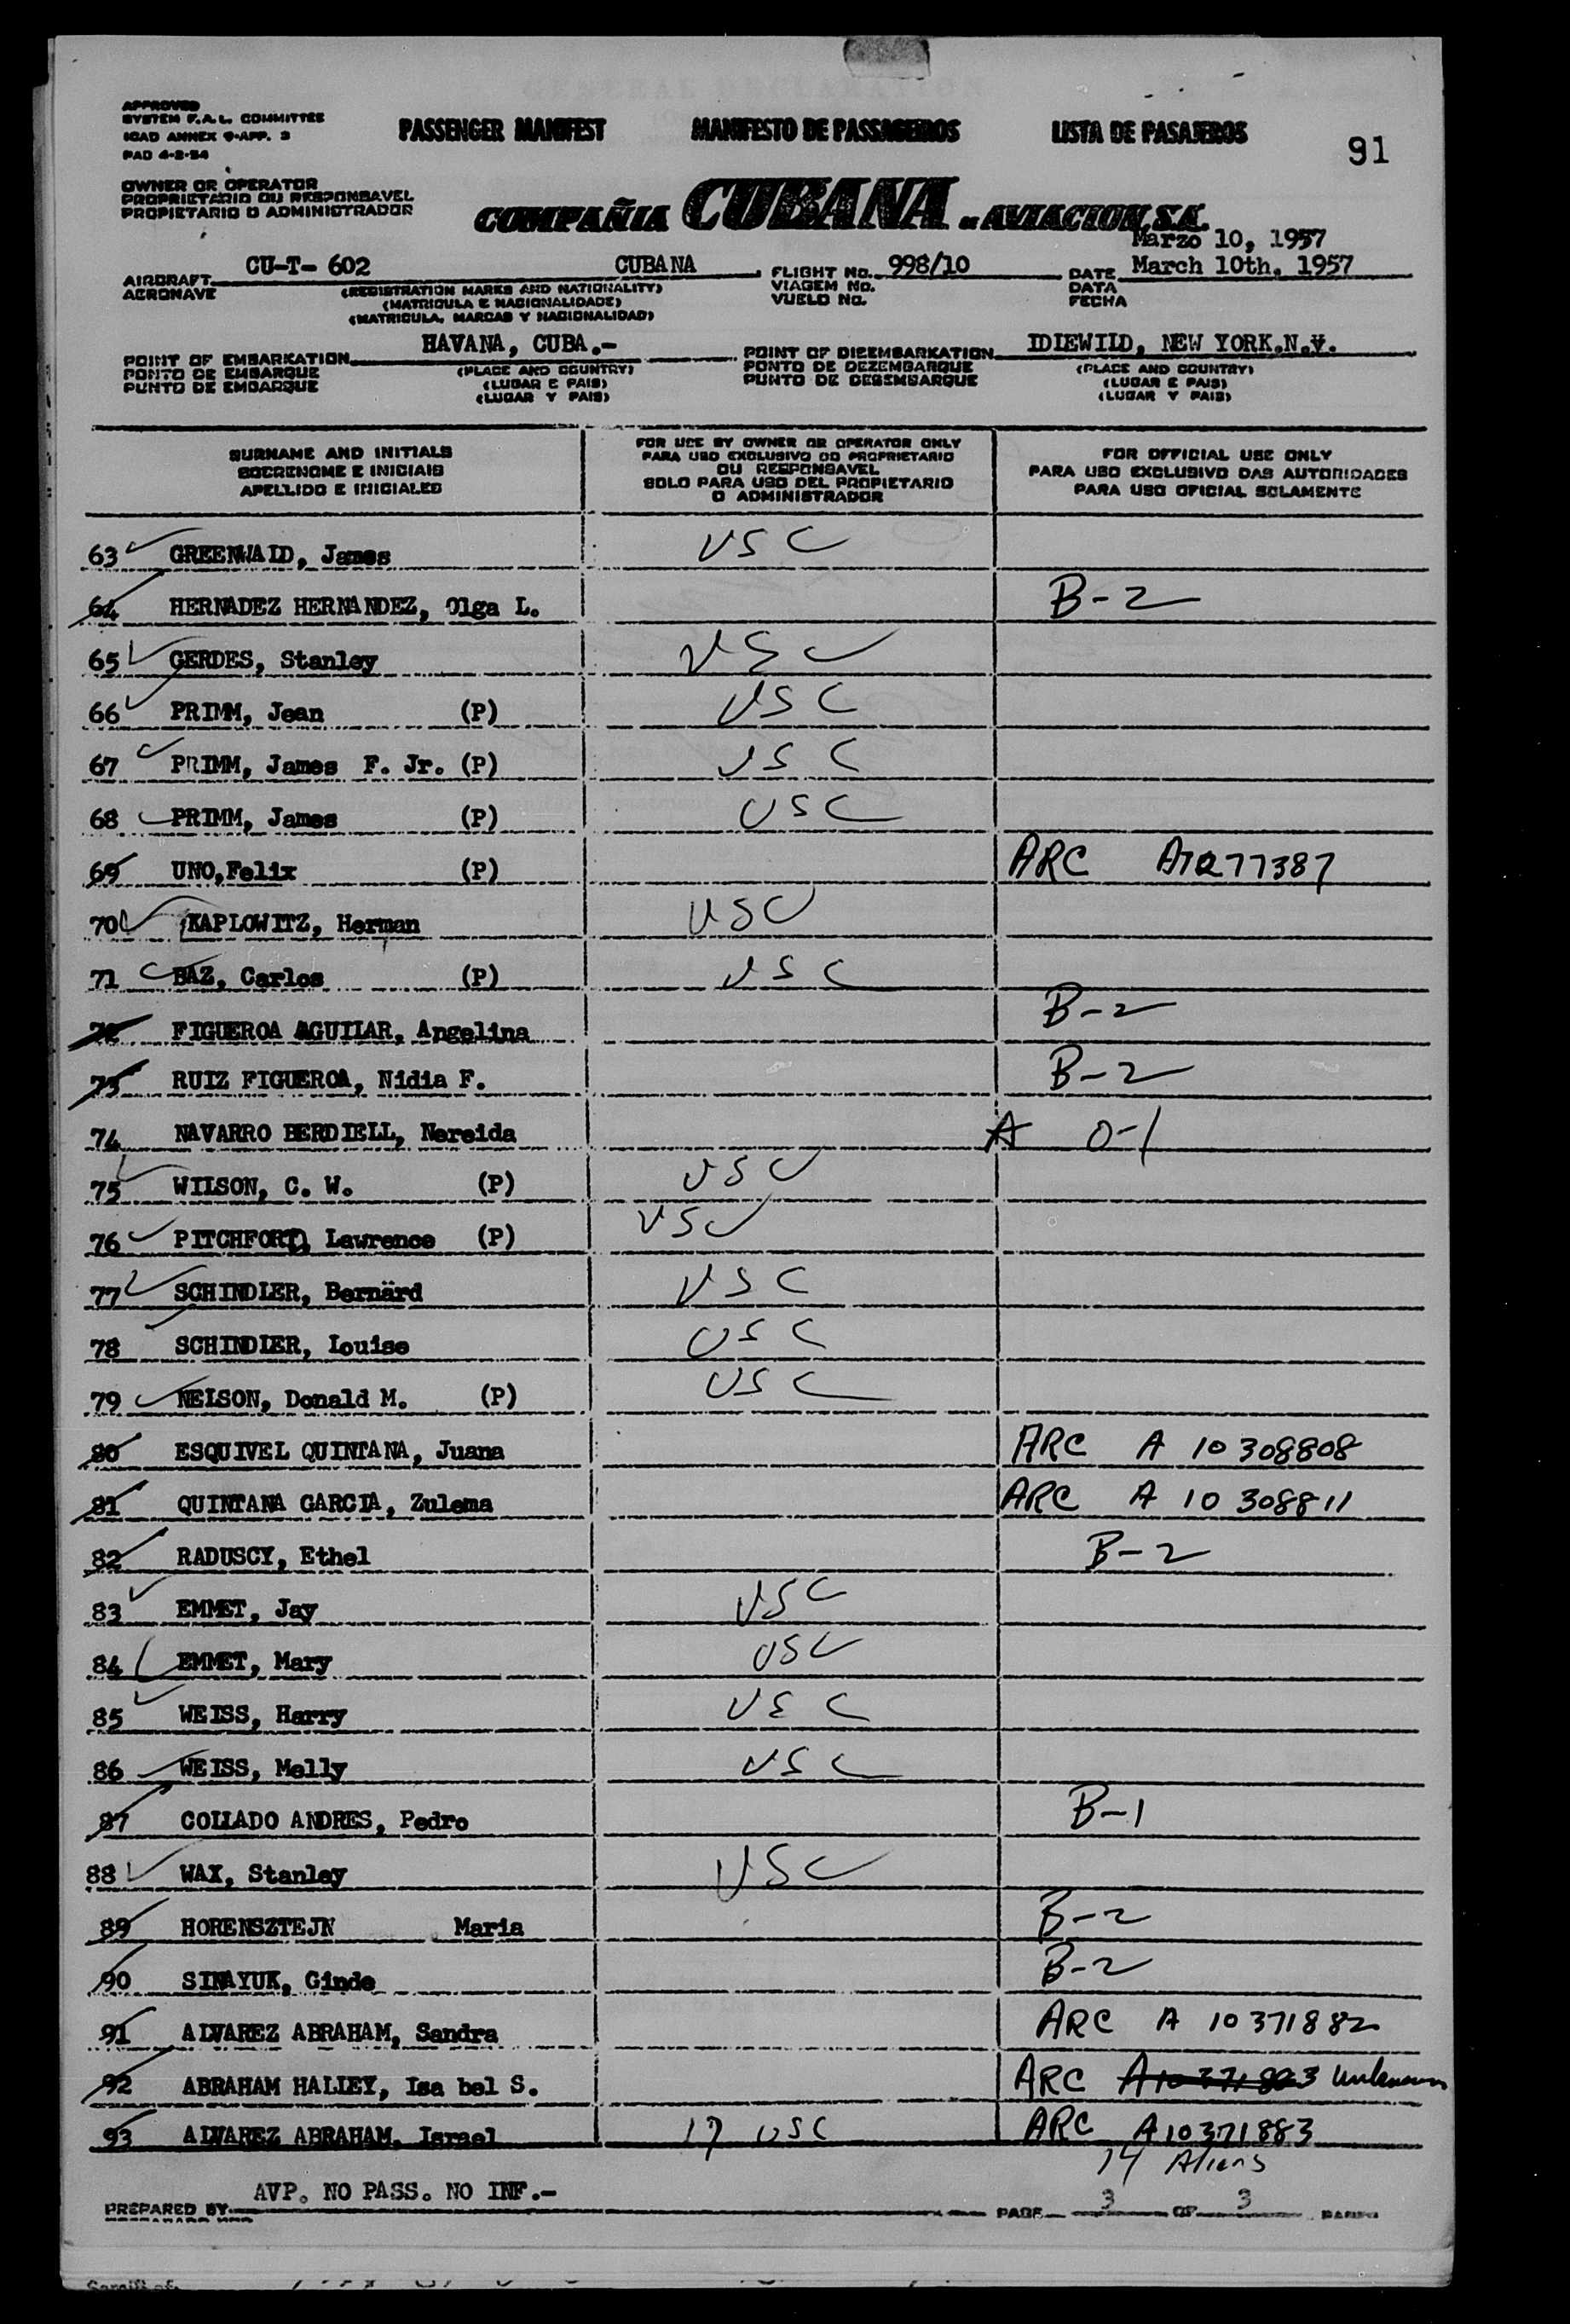 APPROVED
SYSTEM F.A.L. COMMITTEE
ICAO ANNEX 9-APP. 3
PAD 4-2-54
PASSENGER MANIFEST MANIFESTO DE PASSAGEIROS LISTA DE PASAJEROS
91
OWNER OR OPERATOR
PROPRIETARIO OU RESPONSAVEL
PROPIETARIO O ADMINISTRADOR
COMPAÑIA CUBANA DE AVIACION, S.A.
Marzo 10, 1957
AIRCRAFT CU-T- 602 CUBANA FLIGHT No. 998/10 DATE March 10th, 1957
AERONAVE (REGISTRATION MARKS AND NATIONALITY) VIAGEM No. DATA
(MATRICULA E NACIONALIDADE) VUELO No. FECHA
(MATRICULA, MARCAS Y NACIONALIDAD)
POINT OF EMBARKATION HAVANA, CUBA.- POINT OF DISEMBARKATION IDIEWILD, NEW YORK.N.Y.
PONTO DE EMBARQUE (PLACE AND COUNTRY) PONTO DE DEZEMBARQUE (PLACE AND COUNTRY)
PUNTO DE EMBARQUE (LUGAR E PAIS) PUNTO DE DESEMBARQUE (LUGAR E PAIS)
(LUGAR Y PAIS) (LUGAR Y PAIS)
SURNAME AND INITIALS
SOBRENOME E INICIAIS
APELLIDO E INICIALES
FOR USE BY OWNER OR OPERATOR ONLY
PARA USO EXCLUSIVO DO PROPRIETARIO
OU RESPONSAVEL
SOLO PARA USO DEL PROPIETARIO
O ADMINISTRADOR
FOR OFFICIAL USE ONLY
PARA USO EXCLUSIVO DAS AUTORIDADES
PARA USO OFICIAL SOLAMENTE
63 GREENWAID, James USC
64 HERNADEZ HERNANDEZ, Olga L. B-2
65 GERDES, Stanley USC
66 PRIMM, Jean (P) USC
67 PRIMM, James F. Jr. (P) USC
68 PRIMM, James (P) USC
69 UNO,Felix (P) ARC
70 KAPLOWITZ, Herman USC
71 BAZ, Carlos (P) USC
72 FIGUEROA AGUILAR, Angelina B-2
73 RUIZ FIGUEROA, Nidia F. B-2
74 NAVARRO BERDIELL, Nereida A O-1
75 WILSON, C. W. (P) USC
76 PITCHFORD, Lawrence (P) USC
77 SCHINDLER, Bernärd USC
78 SCHINDIER, Louise USC
79 NELSON, Donald M. (P) USC
80 ESQUIVEL QUINTANA, Juana ARC A 10 308808
81 QUINTANA GARCIA, Zulema ARC A 10 308811
82 RADUSCY, Ethel B-2
83 EMMET, Jay USC
84 EMMET, Mary USC
85 WEISS, Harry USC
86 WEISS, Molly USC
87 COLLADO ANDRES, Pedro B-1
88 WAX, Stanley USC
89 HORENSZTEJN Maria B-2
90 SINAYUK, Ginde B-2
91 ALVAREZ ABRAHAM, Sandra ARC A 10 371882
92 ABRAHAM HALLEY, Isa bel S. ARC A10 371883 unknown
93 ALVAREZ ABRAHAM, Israel 17 USC ARC A10371883
14 Aliens
PREPARED BY AVP. NO PASS. NO INF.- PAGE 3 OF 3 PAGES